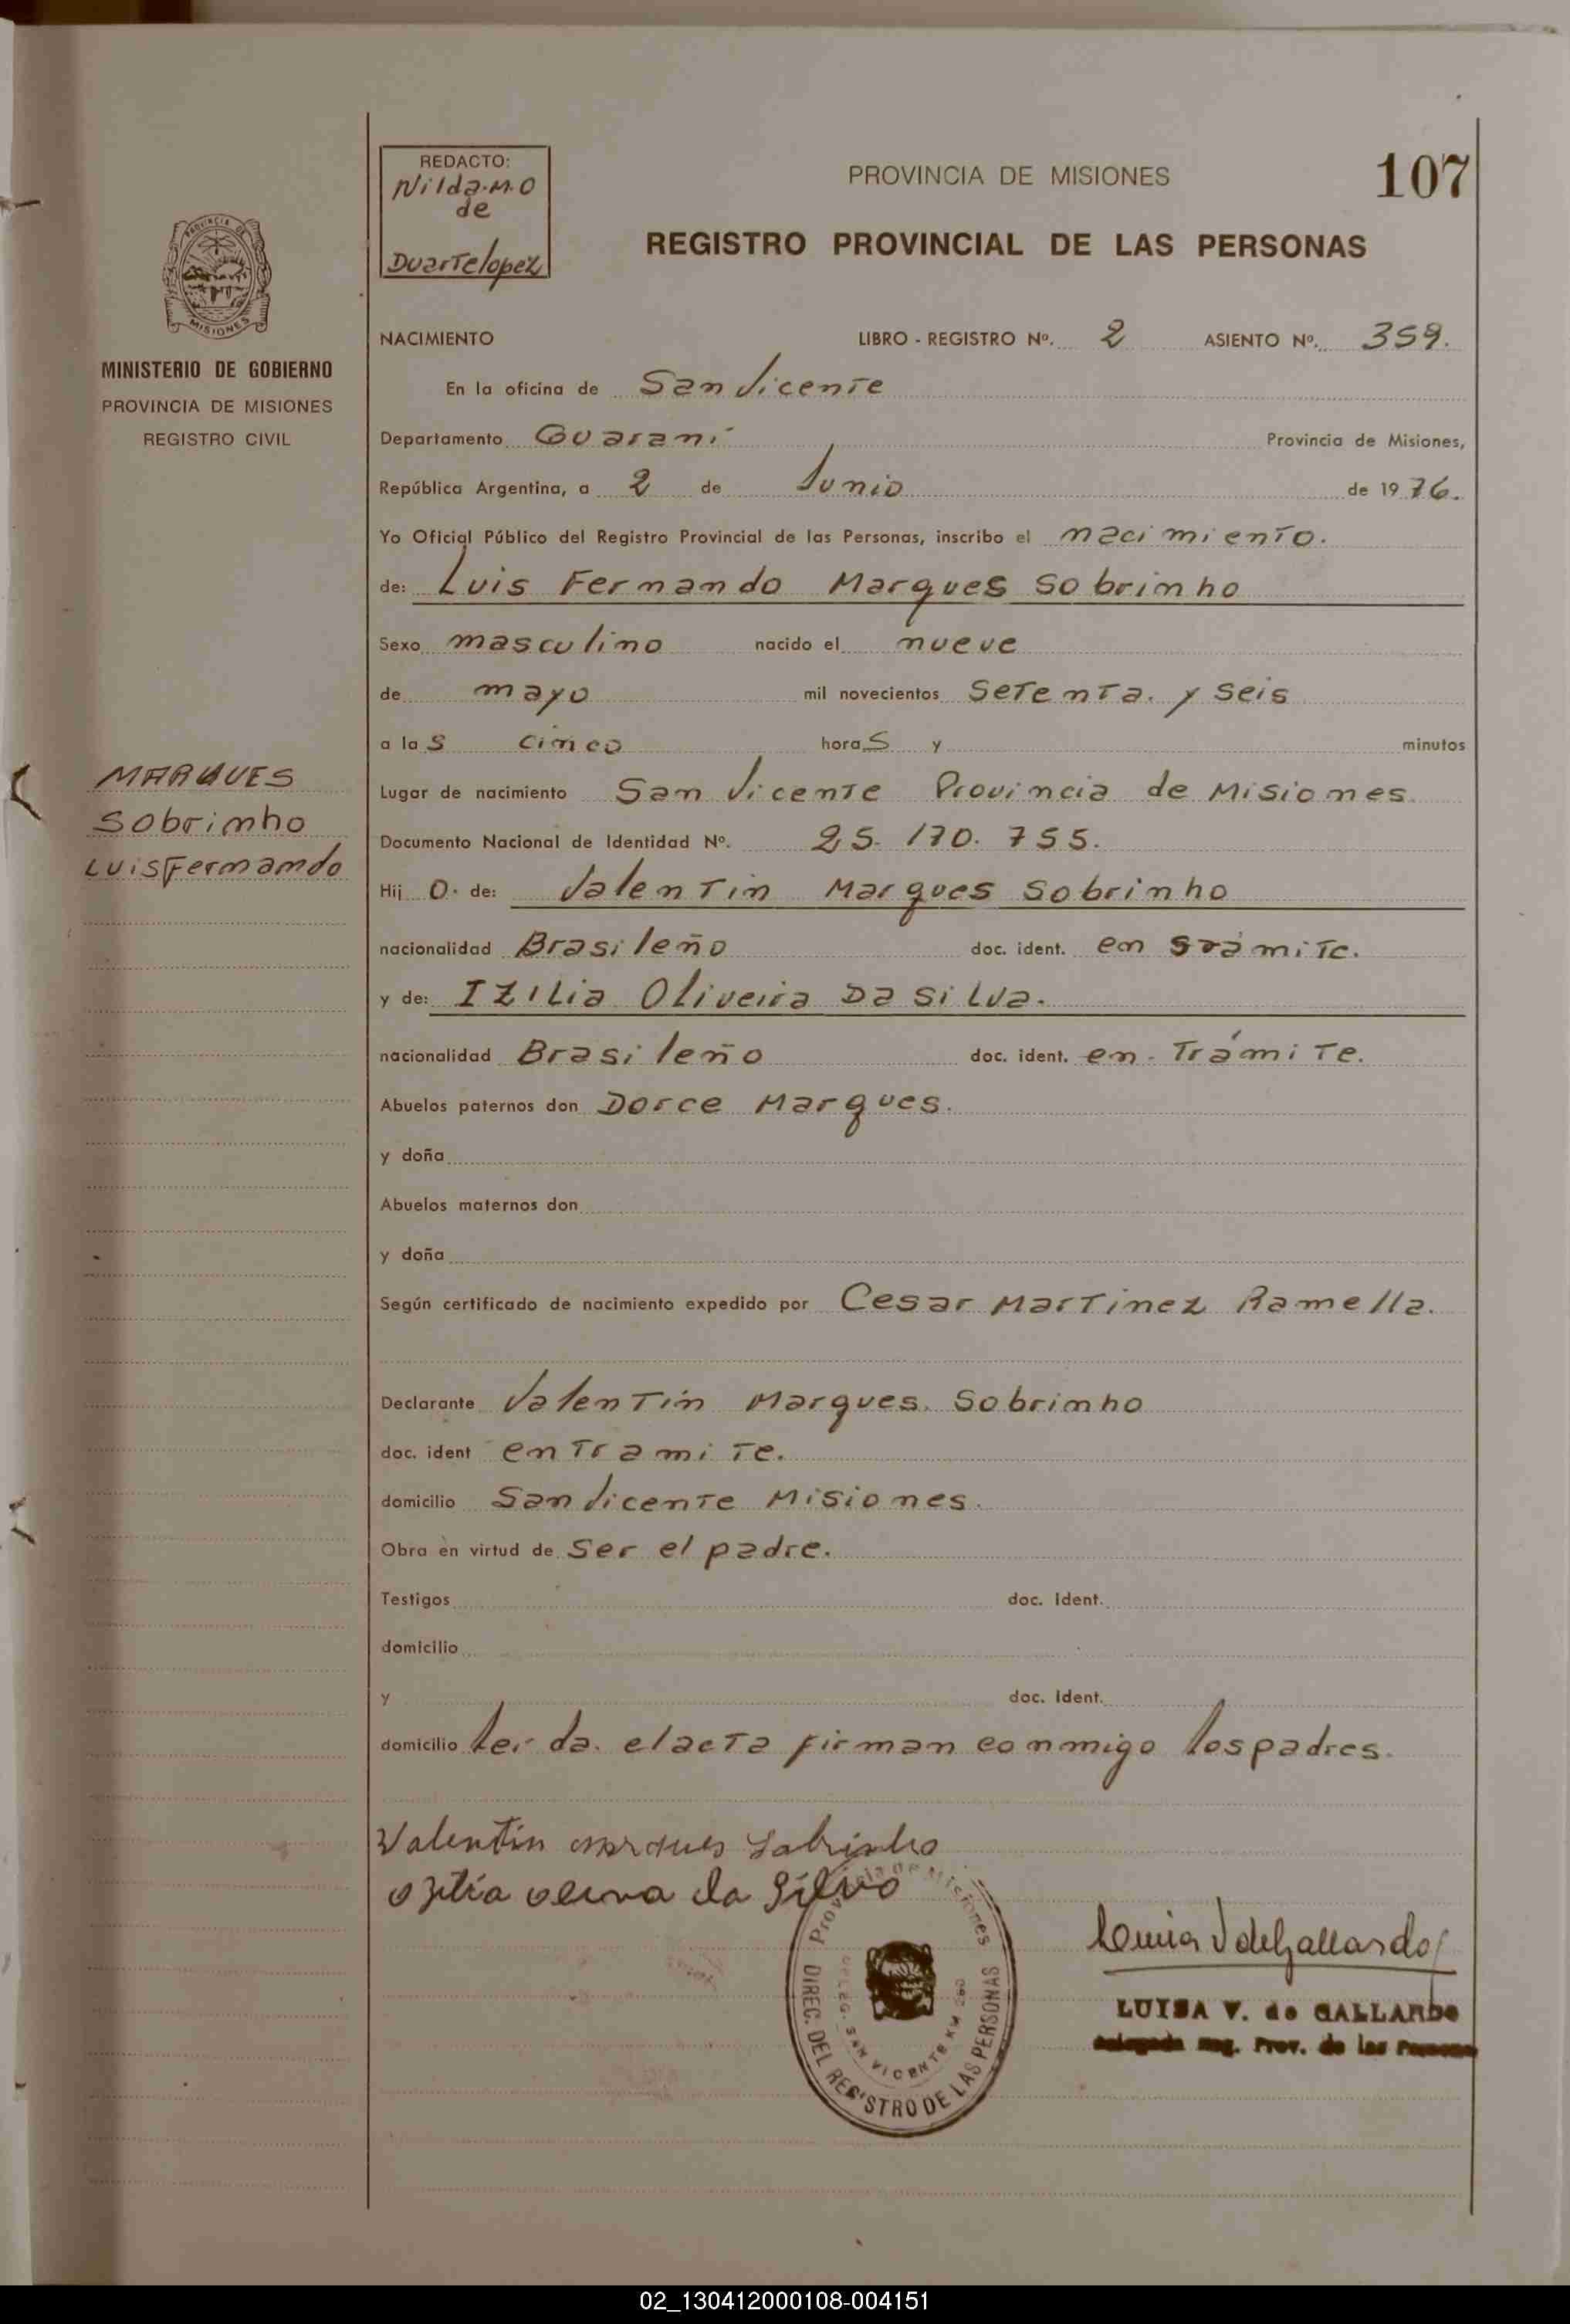 REDACTO:
Nilda.M.O
de
Duartelopez
PROVINCIA DE MISIONES
107
REGISTRO PROVINCIAL DE LAS PERSONAS
PROVINCIA DE
MISIONES
MINISTERIO DE GOBIERNO
PROVINCIA DE MISIONES
REGISTRO CIVIL
MARQUES
Sobrinho
Luis Fernando
NACIMIENTO LIBRO - REGISTRO Nº. 2 ASIENTO Nº. 359.
En la oficina de San Vicente
Departamento Guaraní Provincia de Misiones,
República Argentina, a 2 de Junio de 1976.
Yo Oficial Público del Registro Provincial de las Personas, inscribo el nacimiento.
de: Luis Fernando Marques Sobrinho
Sexo masculino nacido el nueve
de mayo mil novecientos Setenta. y Seis
a las cinco horas y minutos
Lugar de nacimiento San Vicente Provincia de Misiones.
Documento Nacional de Identidad Nº. 25.170.755.
Hijo. de: Valentin Marques Sobrinho
nacionalidad Brasileño doc. ident. en tramite.
y de: Izilia Oliveira Da Silva.
nacionalidad Brasileño doc. ident. en. Trámite.
Abuelos paternos don Dorce Marques.
y doña
Abuelos maternos don
y doña
Según certificado de nacimiento expedido por Cesar Martinez Ramella.
Declarante Valentín Marques. Sobrinho
doc. ident en Tramite.
domicilio San Vicente Misiones.
Obra en virtud de Ser el padre.
Testigos doc. Ident.
domicilio
y doc. Ident.
domicilio Leída. el acta firman conmigo los padres.
Valentin Marques Sobrinho
da Silva
Provincia de Misiones
DIREC. DEL REGISTRO DE LAS PERSONAS
DELEG. SAN VICENTE KM
V de Gallardo
LUISA V. de GALLARDO
Delegada Reg. Prov. de las Personas
02_130412000108-004151